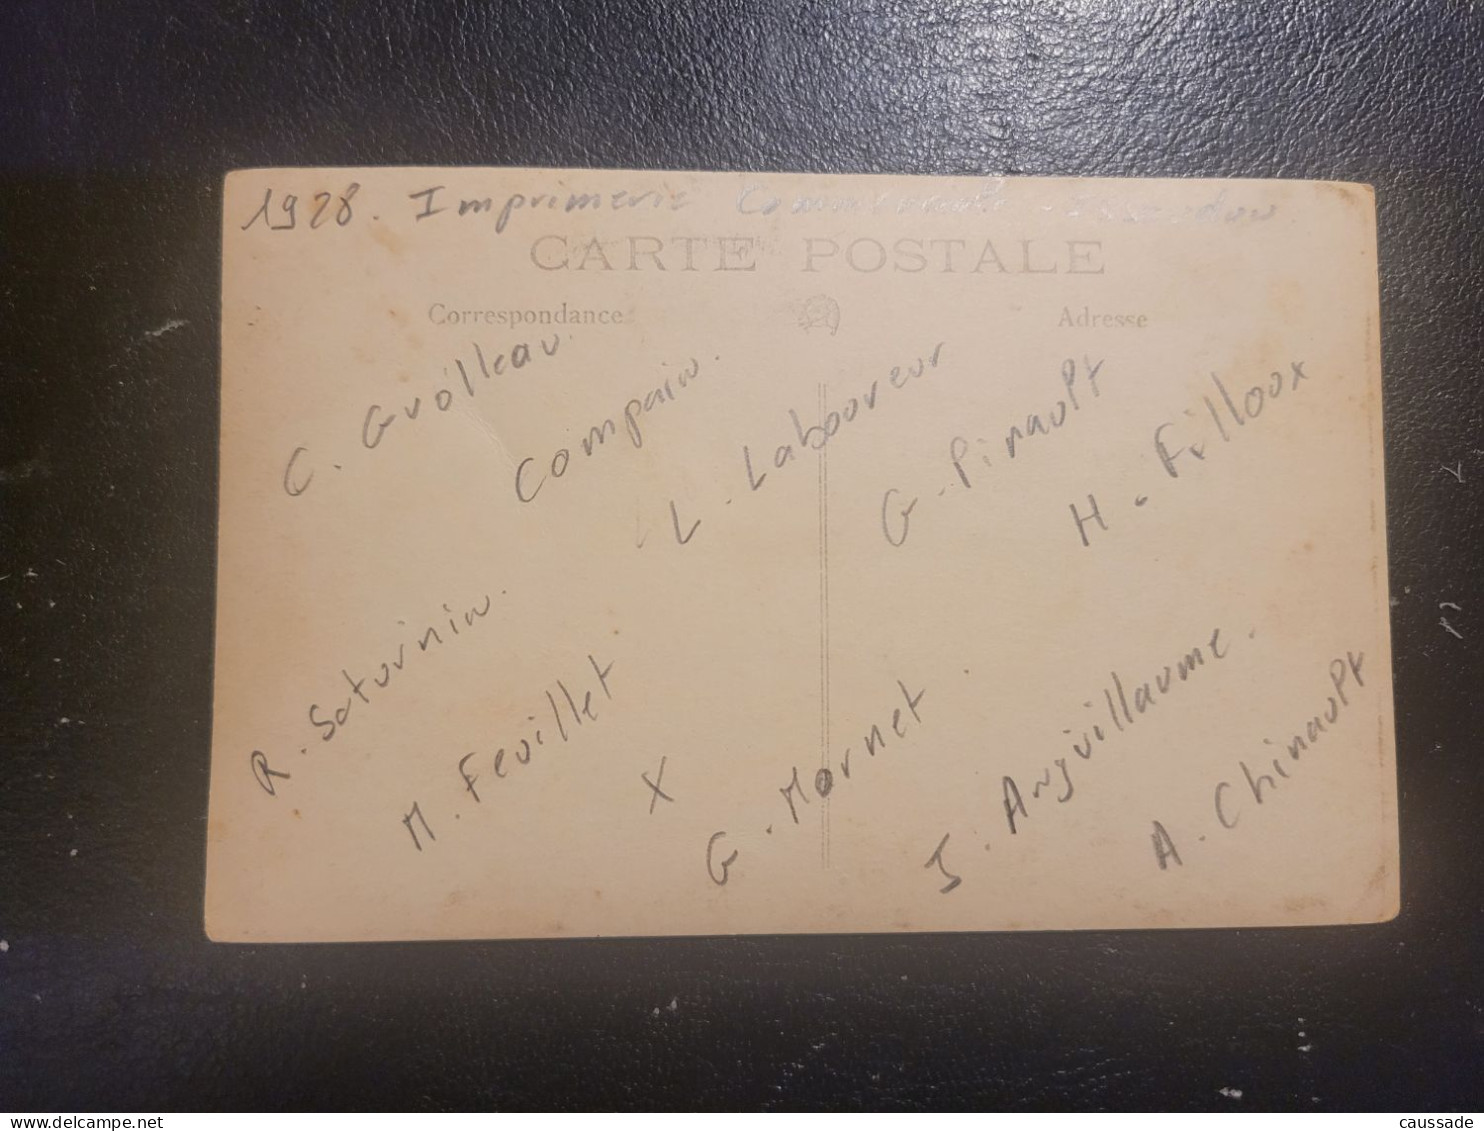 1928. Imprimerie Commerciale
CARTE POSTALE
Correspondance
Adresse
C. Grolleau.
Compain.
L. Laboureur
G. Pinault
H. Filloux
R. Saturnin.
M. Feuillet
X
G. Mornet.
J. Anguillaume.
A. Chinault
caussade